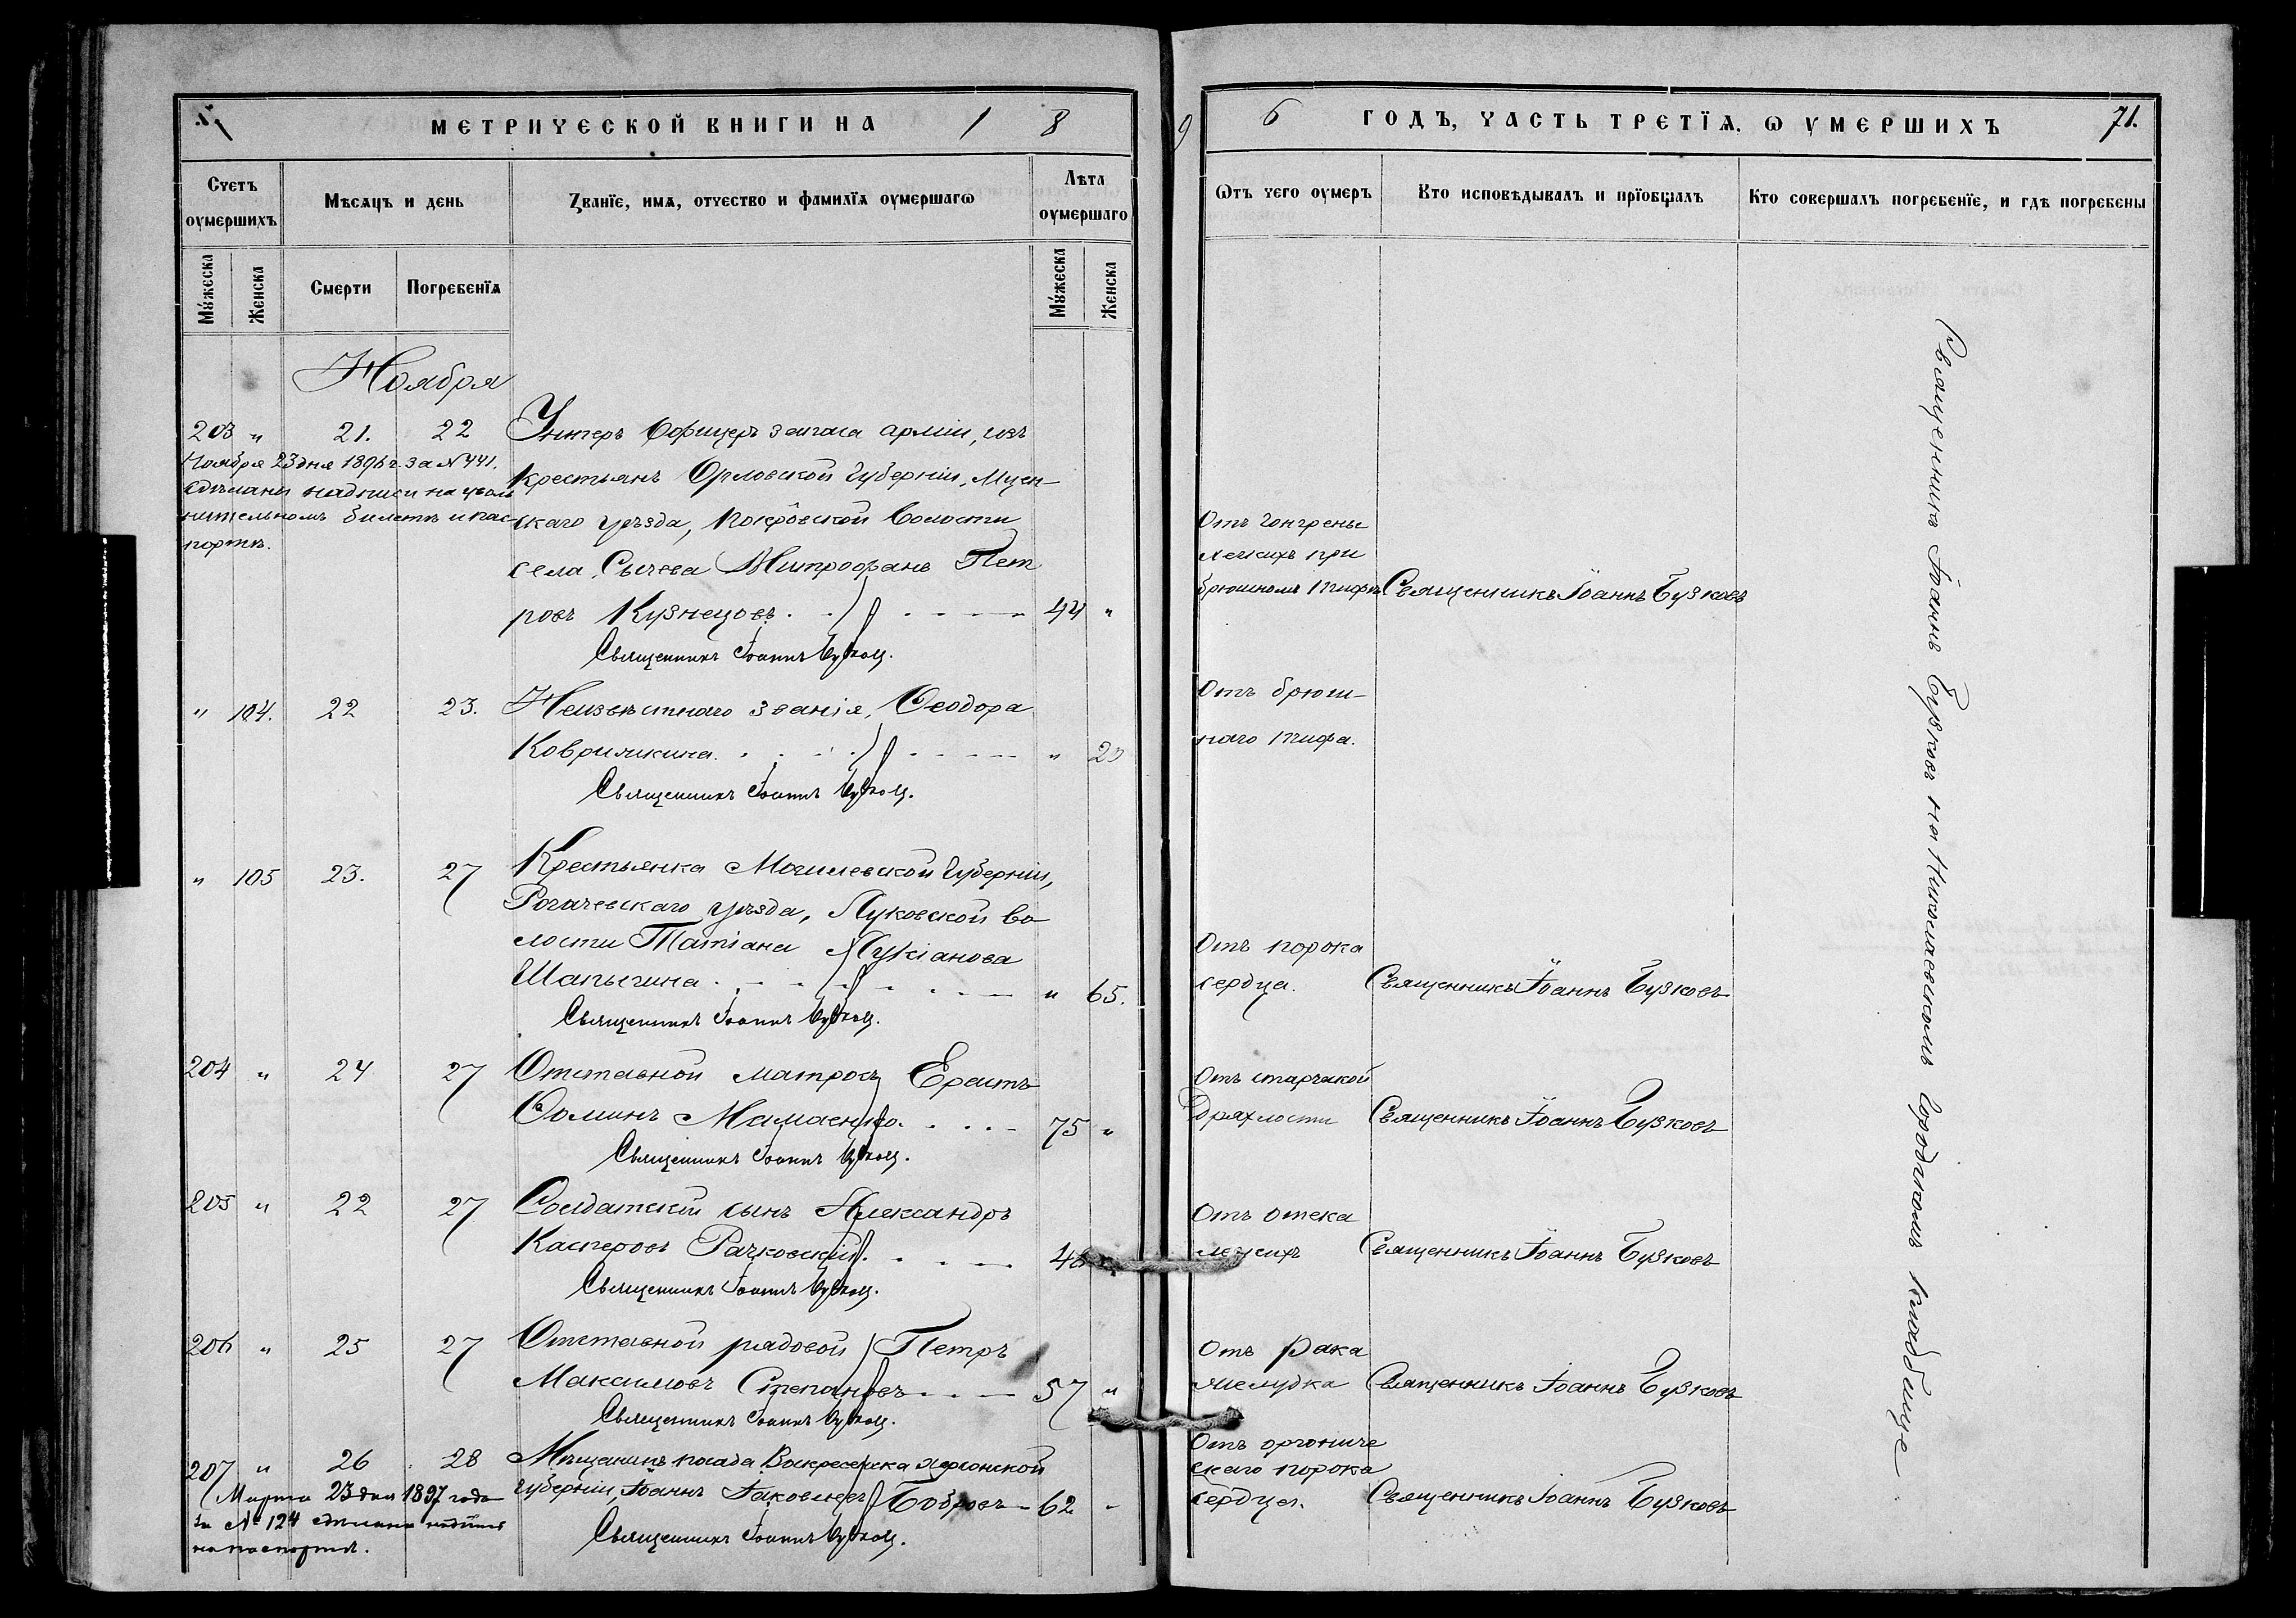 МЕТРИЧЕСКОЙ КНИГИ НА 1 8
9 6 ГОДЪ, ЧАСТЬ ТРЕТІѦ. Ѡ УМЕРШИХЪ 71.
Счетъ оумершихъ
Мѣсѧцъ и день
Званїе, имѧ, отчество и фамилїѧ оумершагѡ
Лѣта оумершаго
Ѿтъ чего оумеръ
Кто исповѣдывалъ и прїобщалъ
Кто совершалъ погребенїе, и гдѣ погребены
Мꙋжеска Женска Смерти Погребенїѧ Мꙋжеска Женска
Ноября
203 " 21. 22 Унтеръ Офицеръ запаса арміи, изъ
крестьянъ Орловской Губерніи, Мцен-
скаго уѣзда, Покровской волости
села Сычева Митрофанъ Пет
ровъ Кузнецовъ 44 "
Священникъ Іоаннъ Бузковъ.
Ноября 23 дня 1896 г. за № 441.
сдѣланы надписи на уволь
нительномъ билетѣ и пас-
портѣ.
Отъ гонгрены
легкихъ при
брюшномъ тифѣ Священникъ Іоаннъ Бузковъ
" 104. 22 23. Неизвѣстнаго званія, Ѳеодора
Ковришкина " 20
Священникъ Іоаннъ Бузковъ.
Отъ брюш-
наго тифа.
" 105 23. 27 Крестьянка Могилевской Губерніи,
Рогачевскаго уѣзда, Луковской во
лости Татіана Лукіанова
Шапыгина " 65.
Священникъ Іоаннъ Бузковъ.
Отъ порока
сердца. Священникъ Іоаннъ Бузковъ
204 " 24 27 Отставной матросъ Ерастъ
Ѳоминъ Мамаенко. 75 "
Священникъ Іоаннъ Бузковъ.
Отъ старческой
дряхлости Священникъ Іоаннъ Бузковъ
205 " 22 27 Солдатскій сынъ Александръ
Касперовъ Рачковскій.
Священникъ Іоаннъ Бузковъ.
Отъ отека
легкихъ Священникъ Іоаннъ Бузковъ
206 " 25 27 Отставной рядовой Петръ
Максимовъ Степановъ 57 "
Священникъ Іоаннъ Бузковъ.
Отъ рака
желудка Священникъ Іоаннъ Бузковъ
207 " 26 28 Мѣщанинъ посада Воскресенска Херсонской
губерніи, Іоаннъ Іаковлевъ Бобровъ 62 "
Священникъ Іоаннъ Бузковъ.
Марта 23 дня 1897 года
за № 124 сдѣлана надпись
на паспортѣ.
Отъ органиче
скаго порока
сердца. Священникъ Іоаннъ Бузковъ
Священникъ Іоаннъ Бузковъ на Николаевскомъ городскомъ кладбищѣ